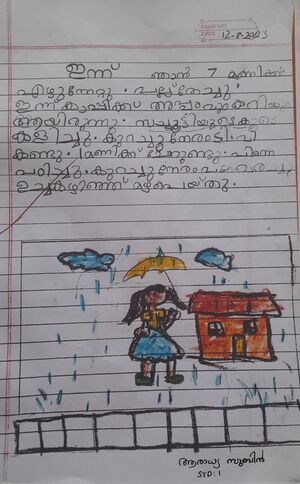 PAGE NO
DATE 12-8-2023
ഇന്ന് ഞാൻ 7 മണിക്ക്
എഴുന്നേറ്റു. പല്ല് തേച്ചു.
ഇന്ന് കാപ്പിക്ക്
ആയിരുന്നു.
കളിച്ചു. കുറച്ചു നേരം ടി.വി
കണ്ടു. 1 മണിക്ക് ചോറുണ്ടു. പിന്നെ
പഠിച്ചു. കുറച്ചു നേരം
ഉച്ചകഴിഞ്ഞ് മഴപെയ്തു.
ആരാധ്യ സുബിൻ
STD: 1